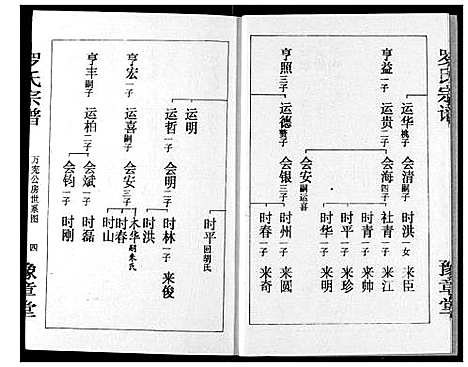 罗氏宗谱
豫章堂
亨益 一子
运华 桃子
会清 嗣子
时洪 一女
来臣
运贵 二子
会海 四子
社青 二子
来江
时青 一子
来帅
时平 一子
来珍
时华 一子
来明
会安 嗣运喜
亨照 三子
运德 赘子
会银 三子
时州 一子
来圆
时春 一子
来奇
运明
时平 回胡氏
运哲 一子
会明 二子
时林 一子
来俊
时洪
亨宏 一子
运喜 嗣子
会安 三子
木华 胡朱氏
时春 一子
时山
亨丰 嗣子
运柏 二子
会斌 一子
时磊
会钧 一子
时刚
罗氏宗谱
万宠公房世系图
四
豫章堂